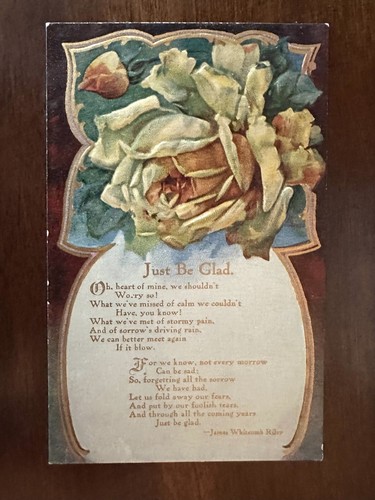 Just Be Glad.
Oh, heart of mine, we shouldn't
Worry so!
What we've missed of calm we couldn't
Have, you know!
What we've met of stormy pain,
And of sorrow's driving rain,
We can better meet again
If it blow.
For we know, not every morrow
Can be sad;
So, forgetting all the sorrow
We have had,
Let us fold away our fears,
And put by our foolish tears,
And through all the coming years
Just be glad.
—James Whitcomb Riley